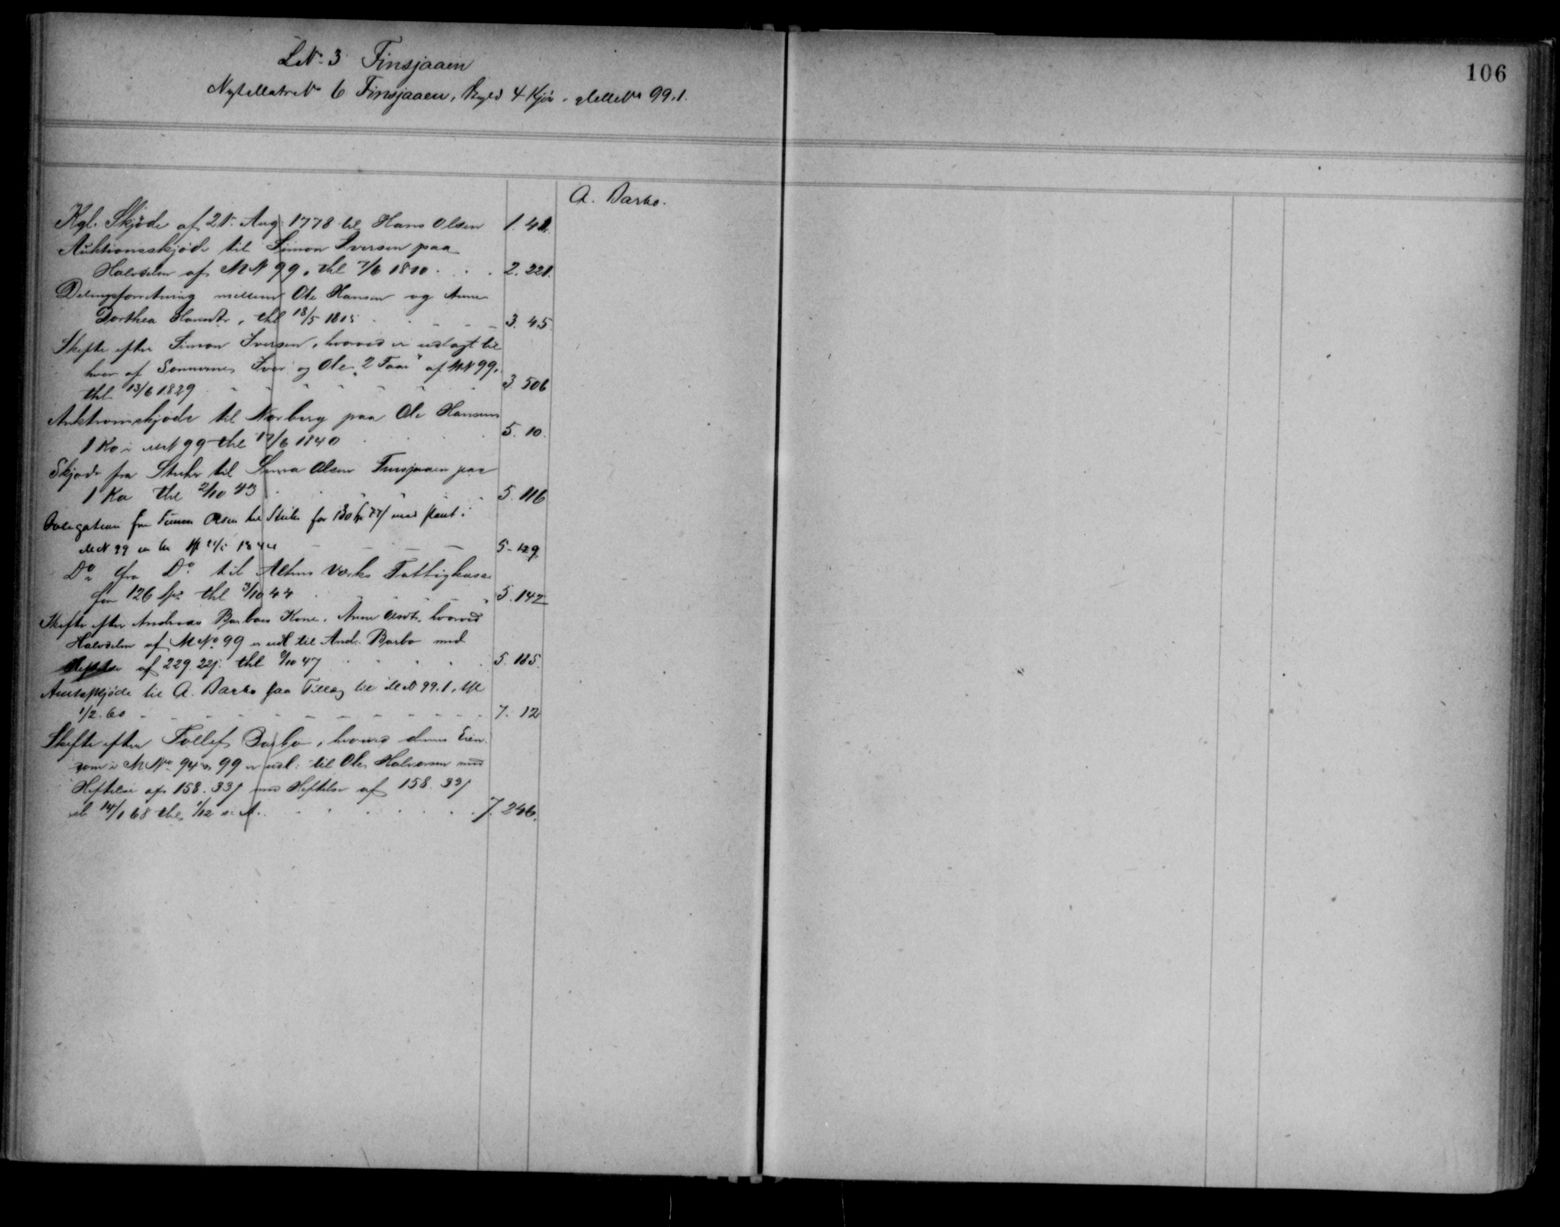 LNo 3 Finsjaaen
106
NytMatrNo 6 Finsjaaen, Skyld 4 Kjør, MNo 99.1.
A. Barbo.
Kgl. Skjöde af 21. Aug. 1778 til Hans Olsen 1. 41.
Auktionsskjöde til Simon Iversen paa
Halvdelen af MN 99, thl 7/6 1810 2. 221.
Delingsforretning mellem Ole Hansen og Anne
Dorthea Hansdtr, thl 18/5 1815 3. 45.
Skifte efter Simon Iversen, hvorved er udlagt til
hver af Sønnerne Iver og Ole "2 Faar" af MN 99,
thl 13/6 1829 3. 506
Auktionsskjöde til Norberg paa Ole Hansens
1 Ko i MN 99 thl 12/6 1840 5. 10.
Skjøde fra til Simon Olsen Finsjaaen paa
1 Ko thl 2/10 43 5. 116
Obligation fra Simon Olsen til for med Pant i
MN 99 5. 129.
Do fra Do til Værks Fattigkasse
for 126 Spd thl 3/10 44 5. 142
Skifte efter Andreas Barbos Kone, Anne, hvorved
Halvdelen af MNo 99 er udl til And. Barbo med
Heftelse af 229. 22/ thl 9/10 47 5. 185.
Amtsskjöde til A. Barbo paa Tillæg til MN 99.1, thl
1/2. 60 7. 12
Skifte efter Tollef Barbo, hvorved dennes Eien-
dom i MNo 94 og 99 er udl. til Ole Halvorsen med
Heftelse af 158. 33/ med Heftelse af 158. 33/
14/1 68 thl 1/12 s. A. 7. 246.